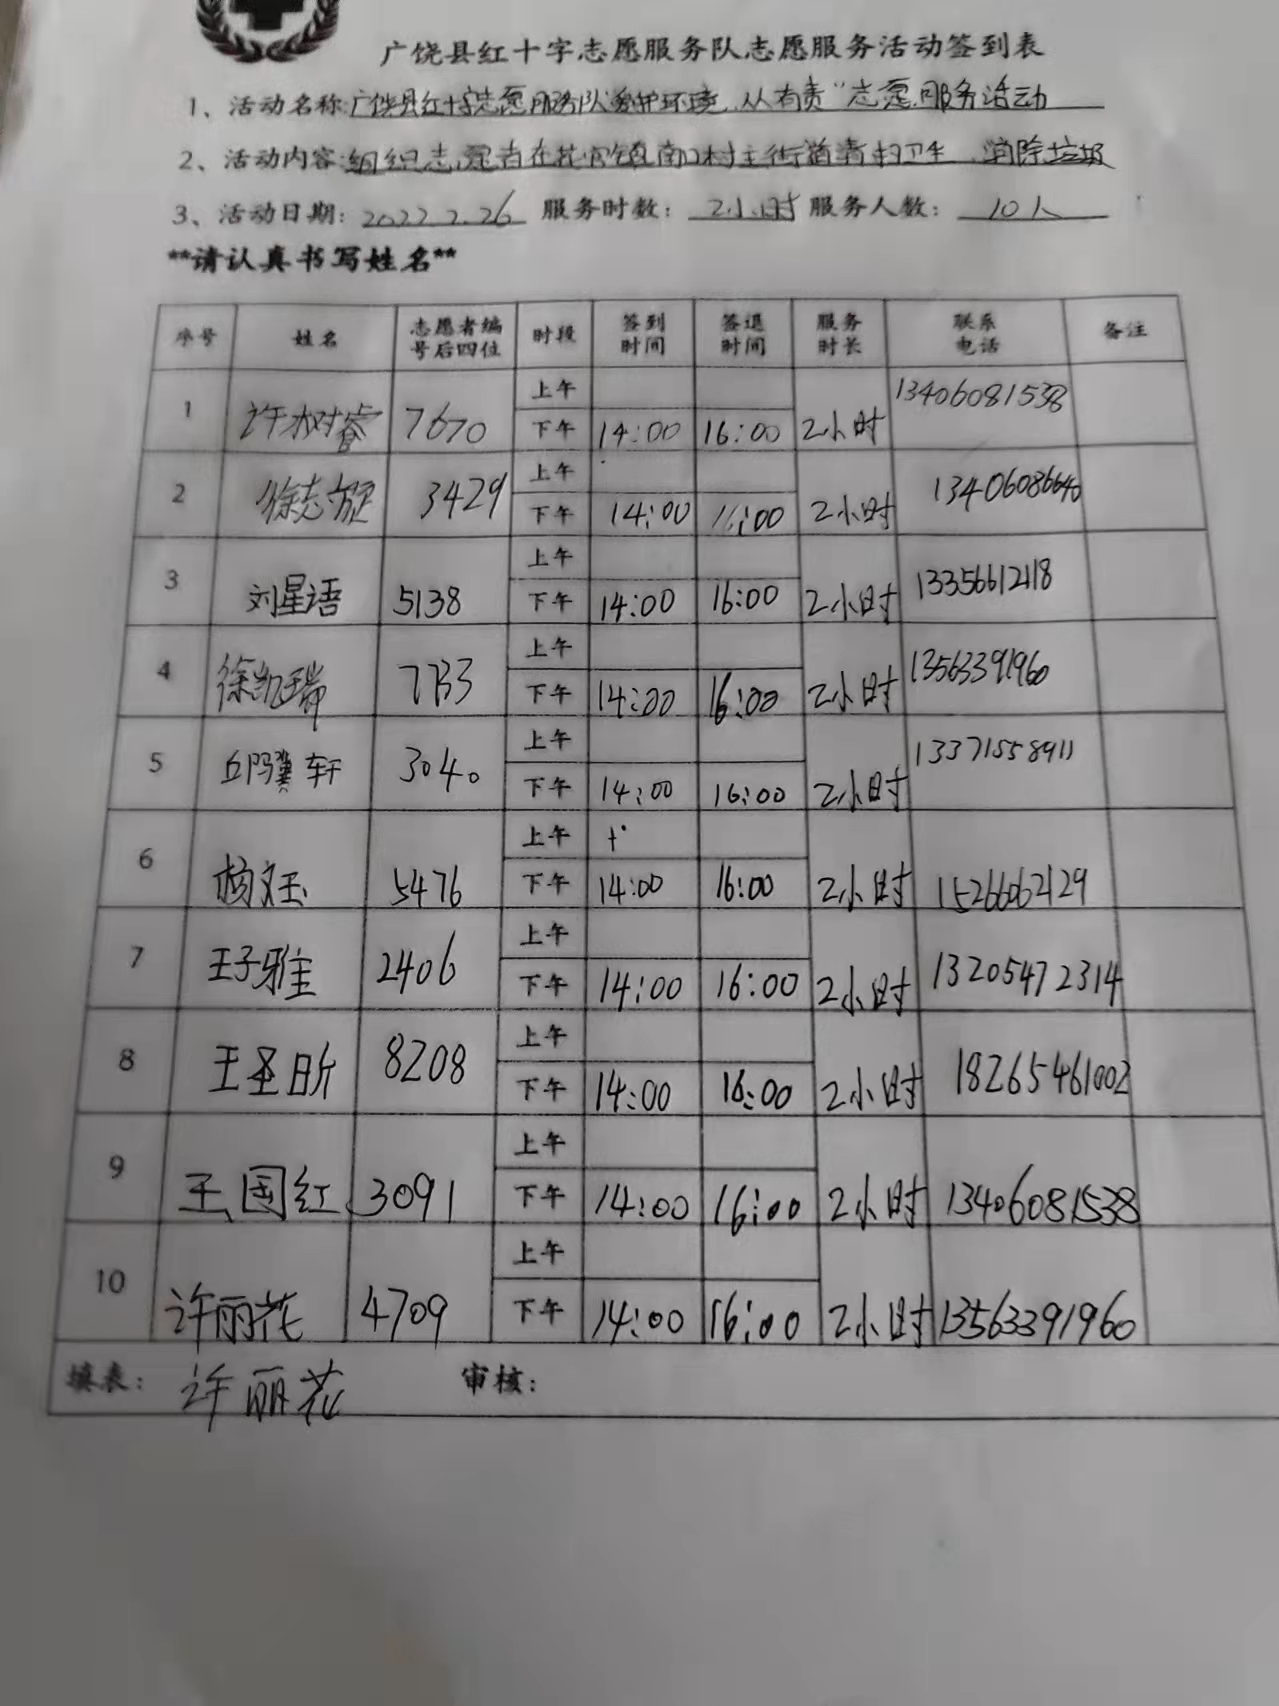 广饶县红十字志愿服务队志愿服务活动签到表
1、活动名称:广饶县红十字志愿服务队"爱护环境,从有责"志愿服务活动
2、活动内容:组织志愿者在花官镇南口村主街道清扫卫生,消除垃圾
3、活动日期:2022.2.26 服务时数:2小时 服务人数:10人
**请认真书写姓名**
序号 姓名 志愿者编号后四位 时段 签到时间 签退时间 服务时长 联系电话 备注
1 许树睿 7670 上午
下午 14:00 16:00 2小时 13406081538
2 徐志旋 3429 上午
下午 14:00 16:00 2小时 13406086640
3 刘星语 5138 上午
下午 14:00 16:00 2小时 13356612118
4 徐凯瑞 7133 上午
下午 14:00 16:00 2小时 13563391960
5 丘骥轩 3040 上午
下午 14:00 16:00 2小时 13371558911
6 杨文玉 5476 上午
下午 14:00 16:00 2小时 15266062129
7 王子雅 2406 上午
下午 14:00 16:00 2小时 13205472314
8 王圣昕 8208 上午
下午 14:00 16:00 2小时 18265461002
9 王国红 3091 上午
下午 14:00 16:00 2小时 13406081538
10 许丽花 4709 上午
下午 14:00 16:00 2小时 13563391960
填表: 许丽花 审核: